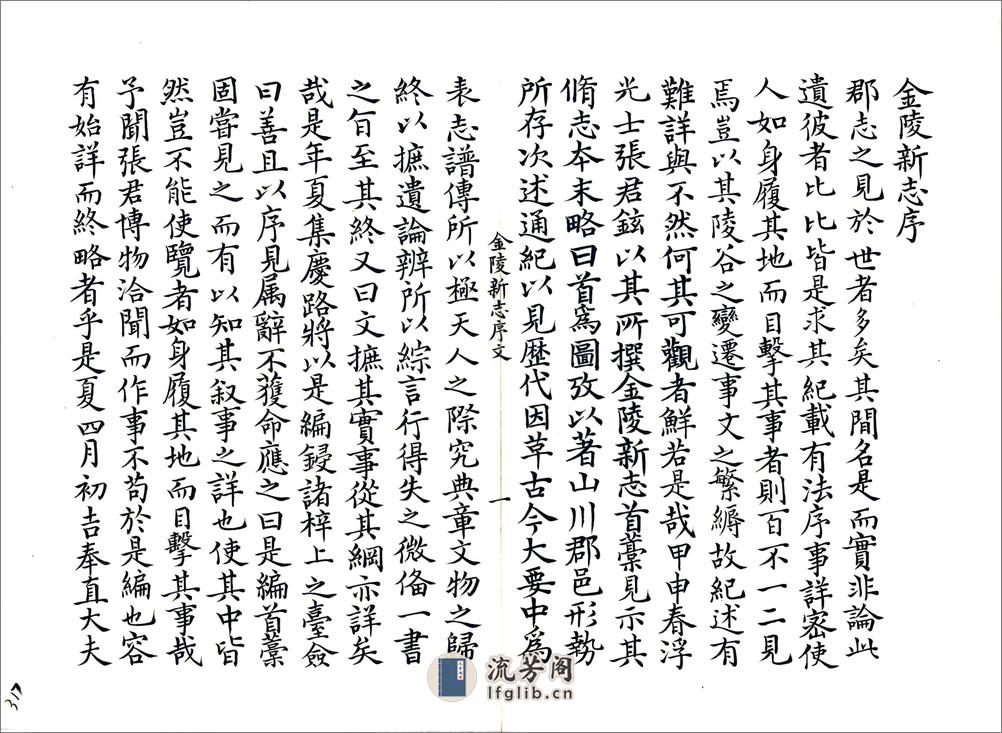 金陵新志序
郡志之見於世者多矣其間名是而實非論此
遺彼者比比皆是求其紀載有法序事詳密使
人如身履其地而目擊其事者則百不一二見
焉豈以其陵谷之變遷事文之繁縟故紀述有
難詳與不然何其可觀者鮮若是哉甲申春浮
光士張君鉉以其所撰金陵新志首藁見示其
脩志本末略曰首爲圖攷以著山川郡邑形勢
所存次述通紀以見歴代因革古今大要中爲
金陵新志序文
一
表志譜傳所以極天人之際究典章文物之歸
終以摭遺論辨所以綜言行得失之微俻一書
之旨至其終又曰文摭其實事從其綱亦詳矣
哉是年夏集慶路將以是編鋟諸梓上之臺僉
曰善且以序見属辭不獲命應之曰是編首藁
固嘗見之而有以知其叙事之詳也使其中皆
然豈不能使覽者如身履其地而目擊其事哉
予聞張君博物洽聞而作事不苟於是編也容
有始詳而終略者乎是夏四月初吉奉直大夫
流芳阁
lfglib.cn
317